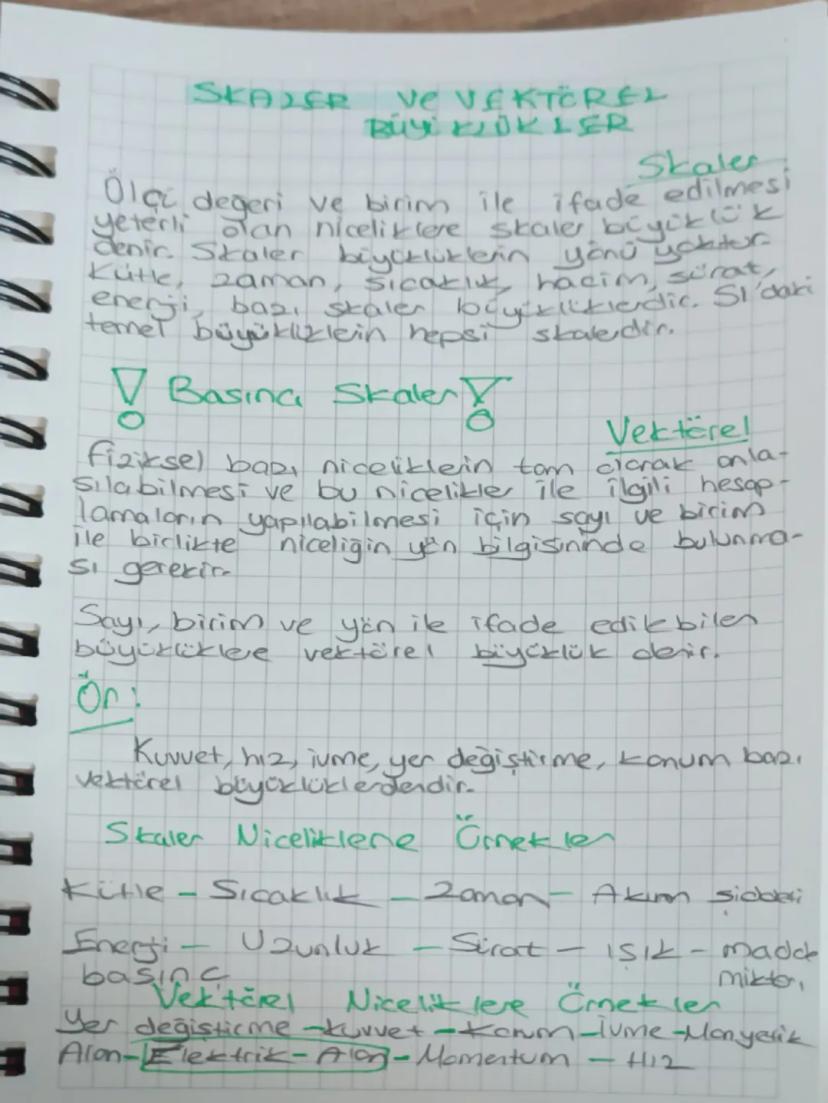 SKALER VE VEKTÖREL
BÜYÜKLÜKLER
Skaler
Ölçü değeri ve birim ile ifade edilmesi
yeterli olan niceliklere skaler büyüklük
denir. Skaler büyüklüklerin yönü yoktur.
Kütle, zaman, sıcaklık, hacim, sürat,
enerji, bazı skaler büyüklüklerdir. SI'daki
temel büyüklüklerin hepsi skalerdir.
! Basınç Skaler !
Vektörel
fiziksel bazı niceliklerin tam olarak anla-
şılabilmesi ve bu nicelikler ile ilgili hesap-
lamaların yapılabilmesi için sayı ve birim
ile birlikte niceliğin yön bilgisininde bulunma-
sı gerekir.
Sayı, birim ve yön ile ifade edilebilen
büyüklüklere vektörel büyüklük denir.
Ör:
Kuvvet, hız, ivme, yer değiştirme, konum bazı
vektörel büyüklüklerdendir.
Skaler Niceliklere Örnekler
Kütle - Sıcaklık - Zaman - Akım şiddeti
Enerji - Uzunluk - Sürat - ışık - madde
basınç miktarı
Vektörel Niceliklere Örnekler
Yer değiştirme - Kuvvet - Konum - İvme - Manyetik
Alan - Elektrik - Alan - Momentum - Hız